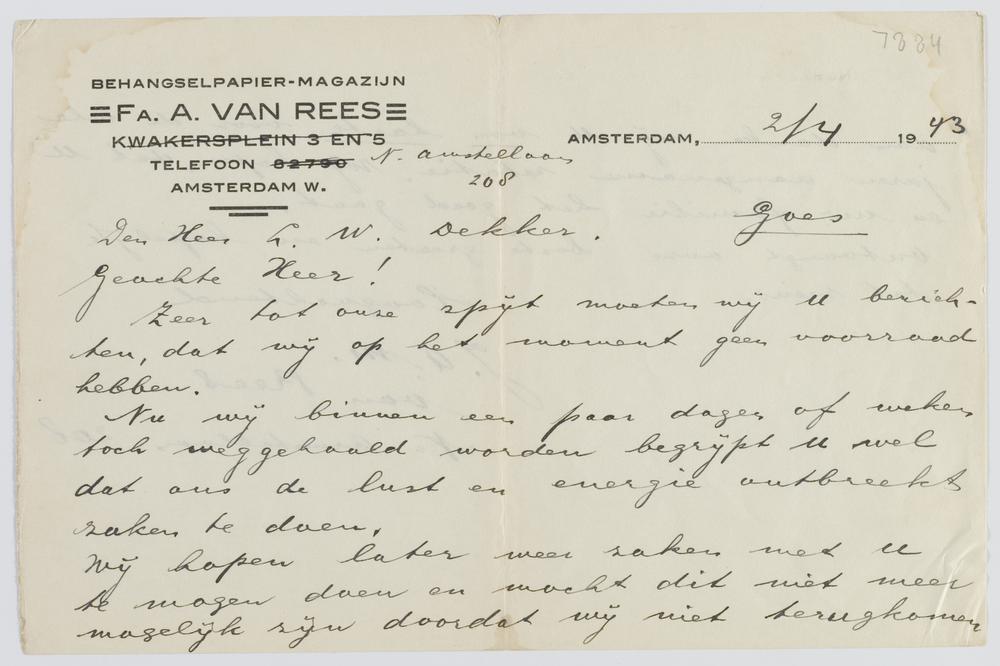 7884
BEHANGSELPAPIER-MAGAZIJN
FA. A. VAN REES
KWAKERSPLEIN 3 EN 5
TELEFOON 82790
AMSTERDAM W.
N. Amstellaan
208
AMSTERDAM, 2/4 1943
Goes
Den Heer L. W. Dekker.
Geachte Heer!
Zeer tot onze spijt moeten wij U berich-
ten, dat wij op het moment geen voorraad
hebben.
Nu wij binnen een paar dagen of weken
toch weggehaald worden begrijpt U wel
dat ons de lust en energie ontbreekt
zaken te doen.
Wij hopen later weer zaken met U
te mogen doen en mocht dit niet meer
mogelijk zijn doordat wij niet terugkomen